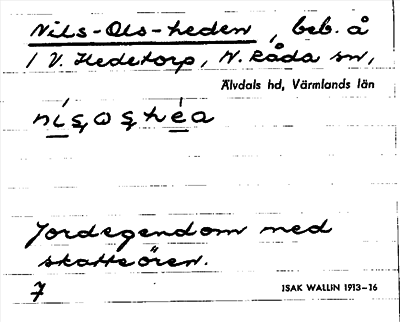 Nils-Ols-heden, beb. å
1 V. Hedetorp, N. Råda sn,
Älvdals hd, Värmlands län
Jordegendom med
skatteören.
7
ISAK WALLIN 1913–16